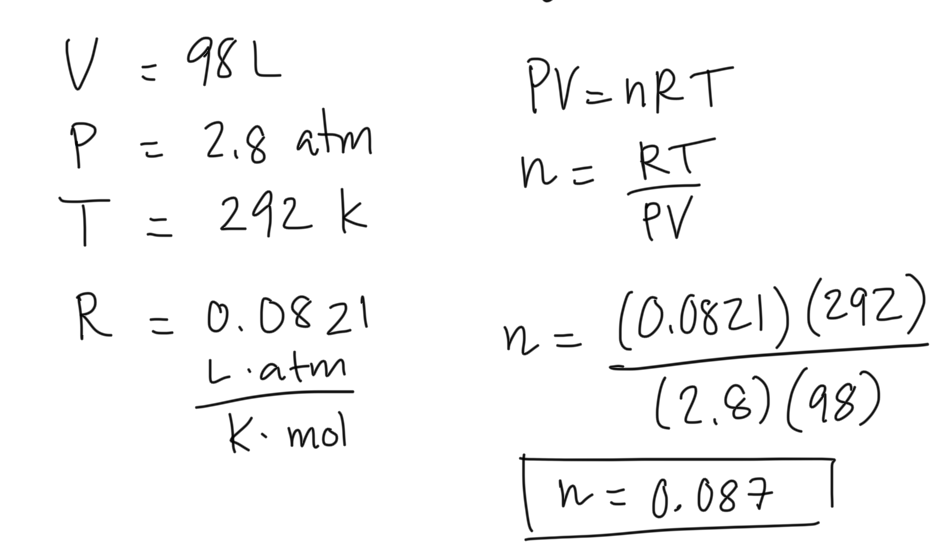 V = 98 L
P = 2.8 atm
T = 292 k
R = 0.0821
L · atm
K · mol
PV = nRT
n = RT
PV
n = (0.0821)(292)
(2.8)(98)
n = 0.087